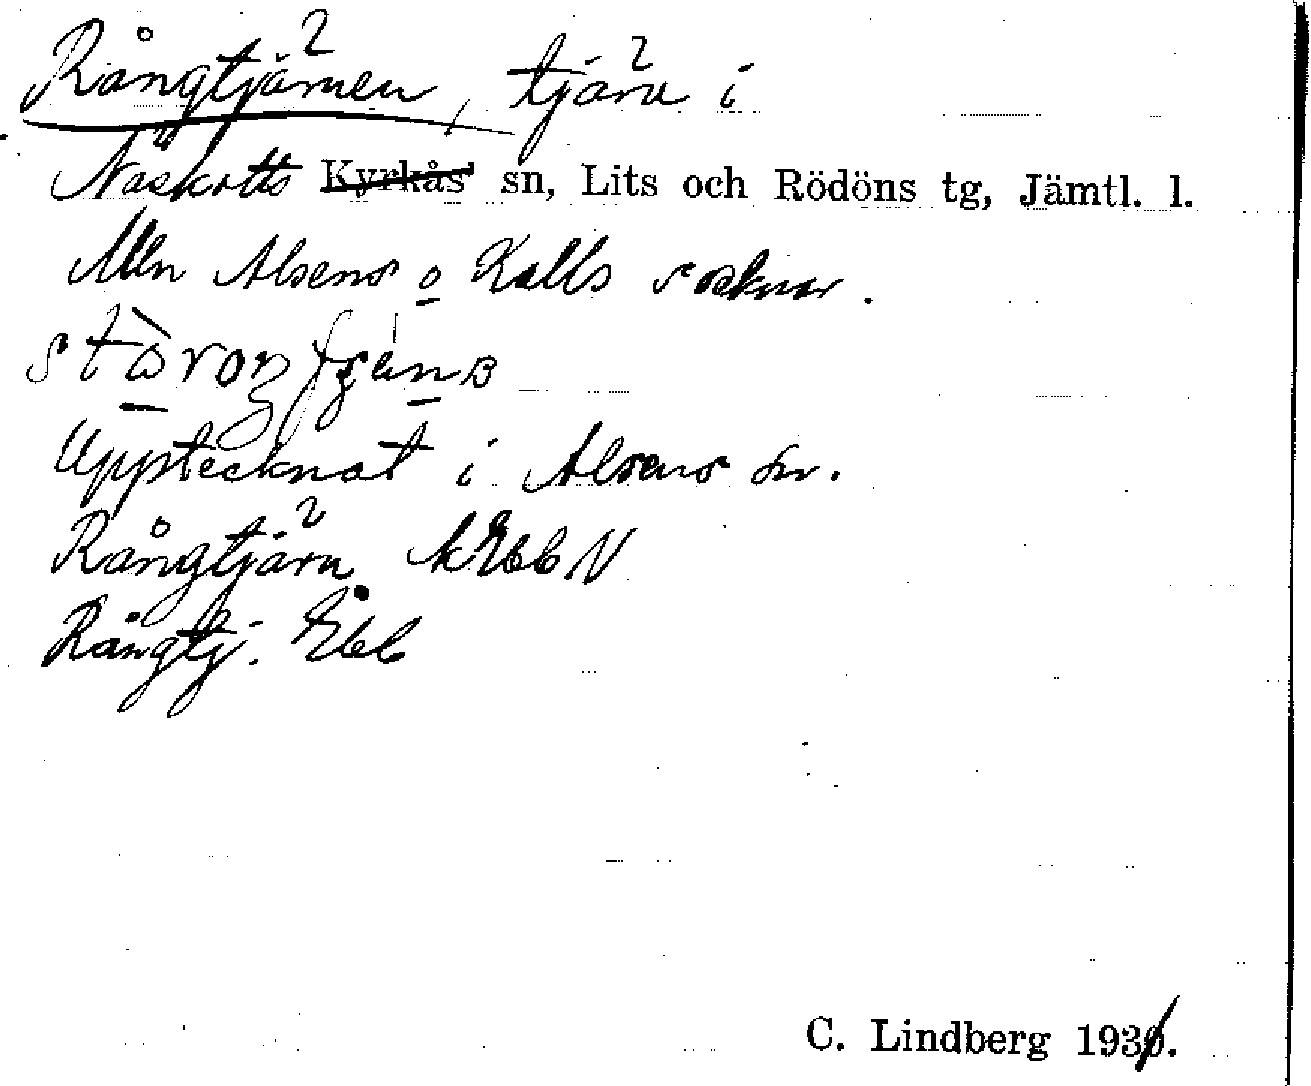 Rångtjärnen, tjärn i
Näskotts Kyrkås sn, Lits och Rödöns tg, Jämtl. l.
Mln Alsens o Kalls socknar.
Upptecknat i Alsens sn.
Rångtjärn kEbbN
Rångtj. Ebb
C. Lindberg 193